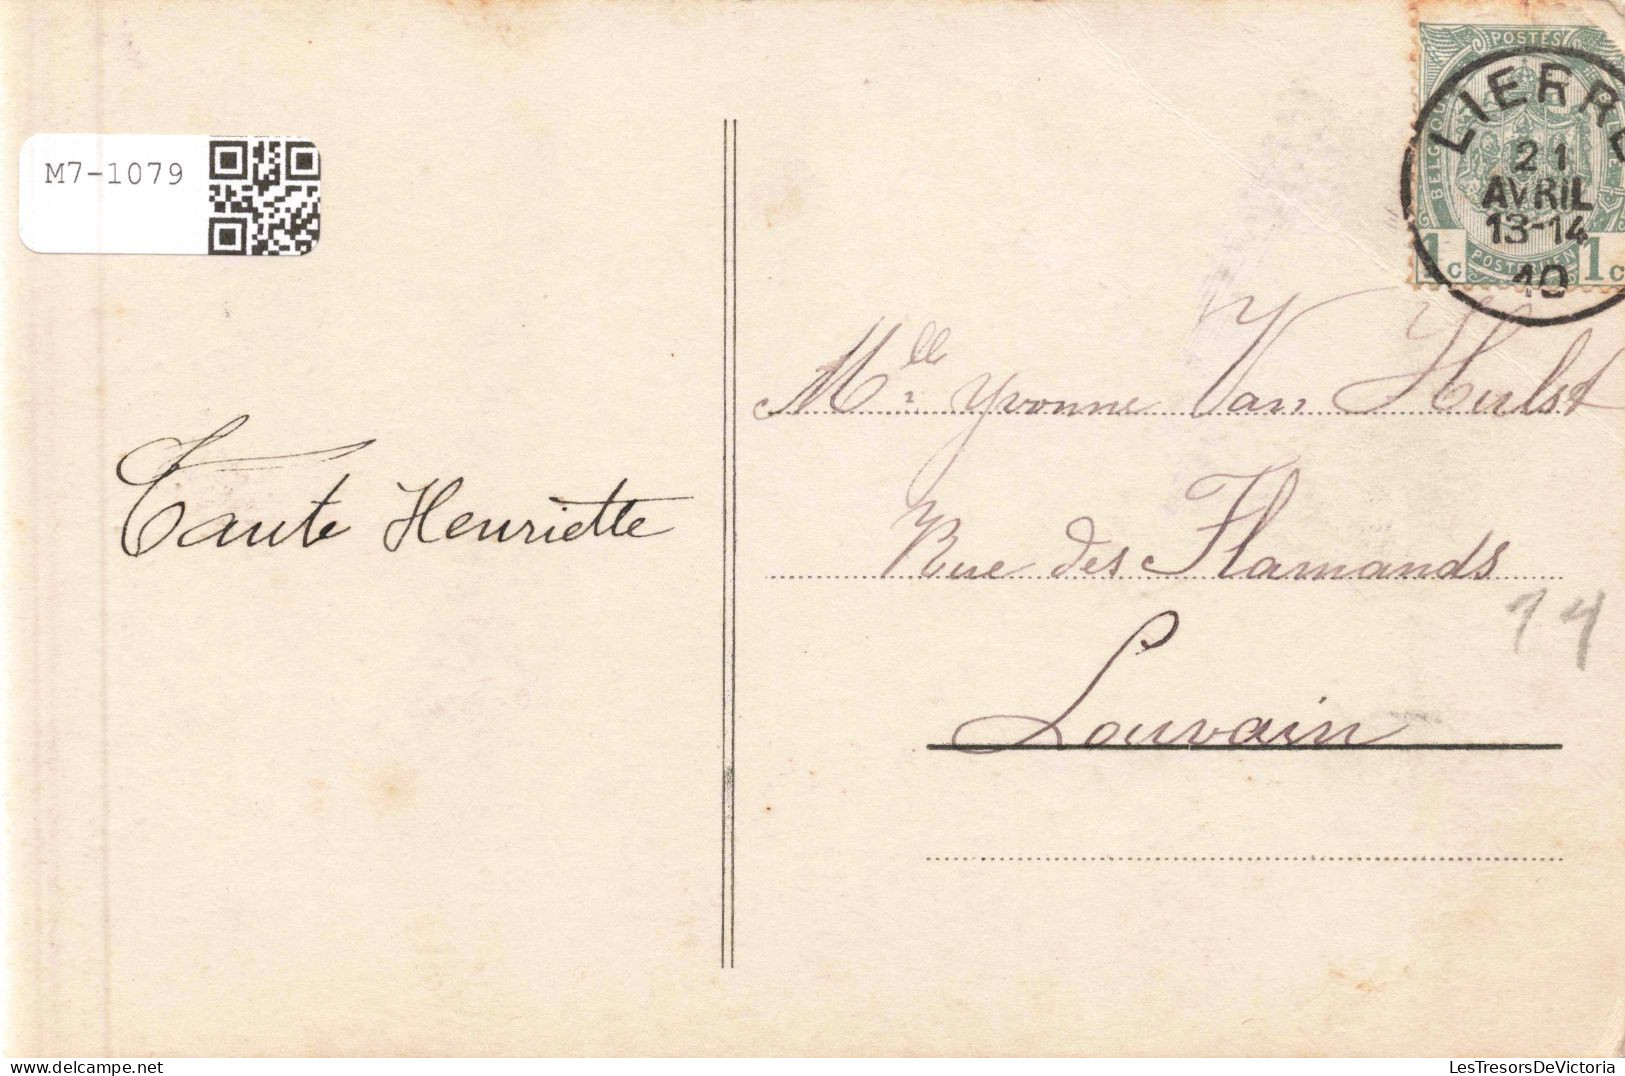 POSTES
BELGIQUE
LIERRE
21
AVRIL
13-14
10
1c 1c
M7-1079
Mlle Yvonne Van Hulst
Tante Henriette
Rue des Flamands
14
Louvain
LesTresorsDeVictoria